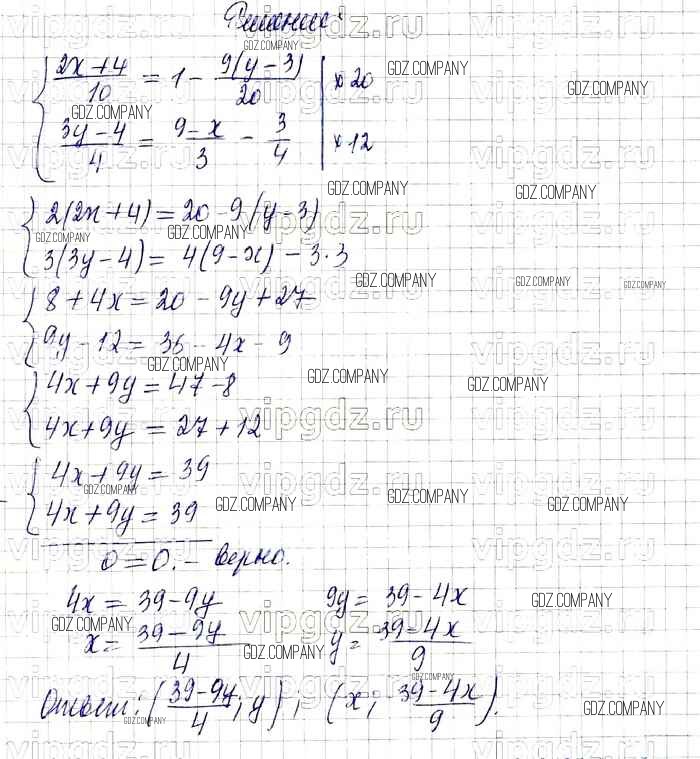 Решение:
{ (2x+4)/10 = 1 - 9(y-3)/20 | ×20
{ (3y-4)/4 = (9-x)/3 - 3/4 | ×12
{ 2(2x+4) = 20-9(y-3)
{ 3(3y-4) = 4(9-x) - 3·3
{ 8+4x = 20-9y+27
{ 9y-12 = 36-4x-9
{ 4x+9y = 47-8
{ 4x+9y = 27+12
- { 4x+9y = 39
{ 4x+9y = 39
0 = 0. - верно.
4x = 39-9y 9y = 39-4x
x = (39-9y)/4 y = (39-4x)/9
Ответ: ((39-9y)/4; y); (x; (39-4x)/9).
GDZ.COMPANY
vipgdz.ru